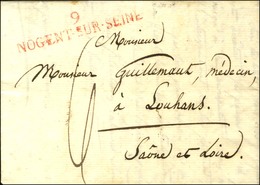 9
NOGENT-SUR-SEINE
Monsieur
Monsieur Guillemaut, médecin,
à Louhans.
Saône et Loire.